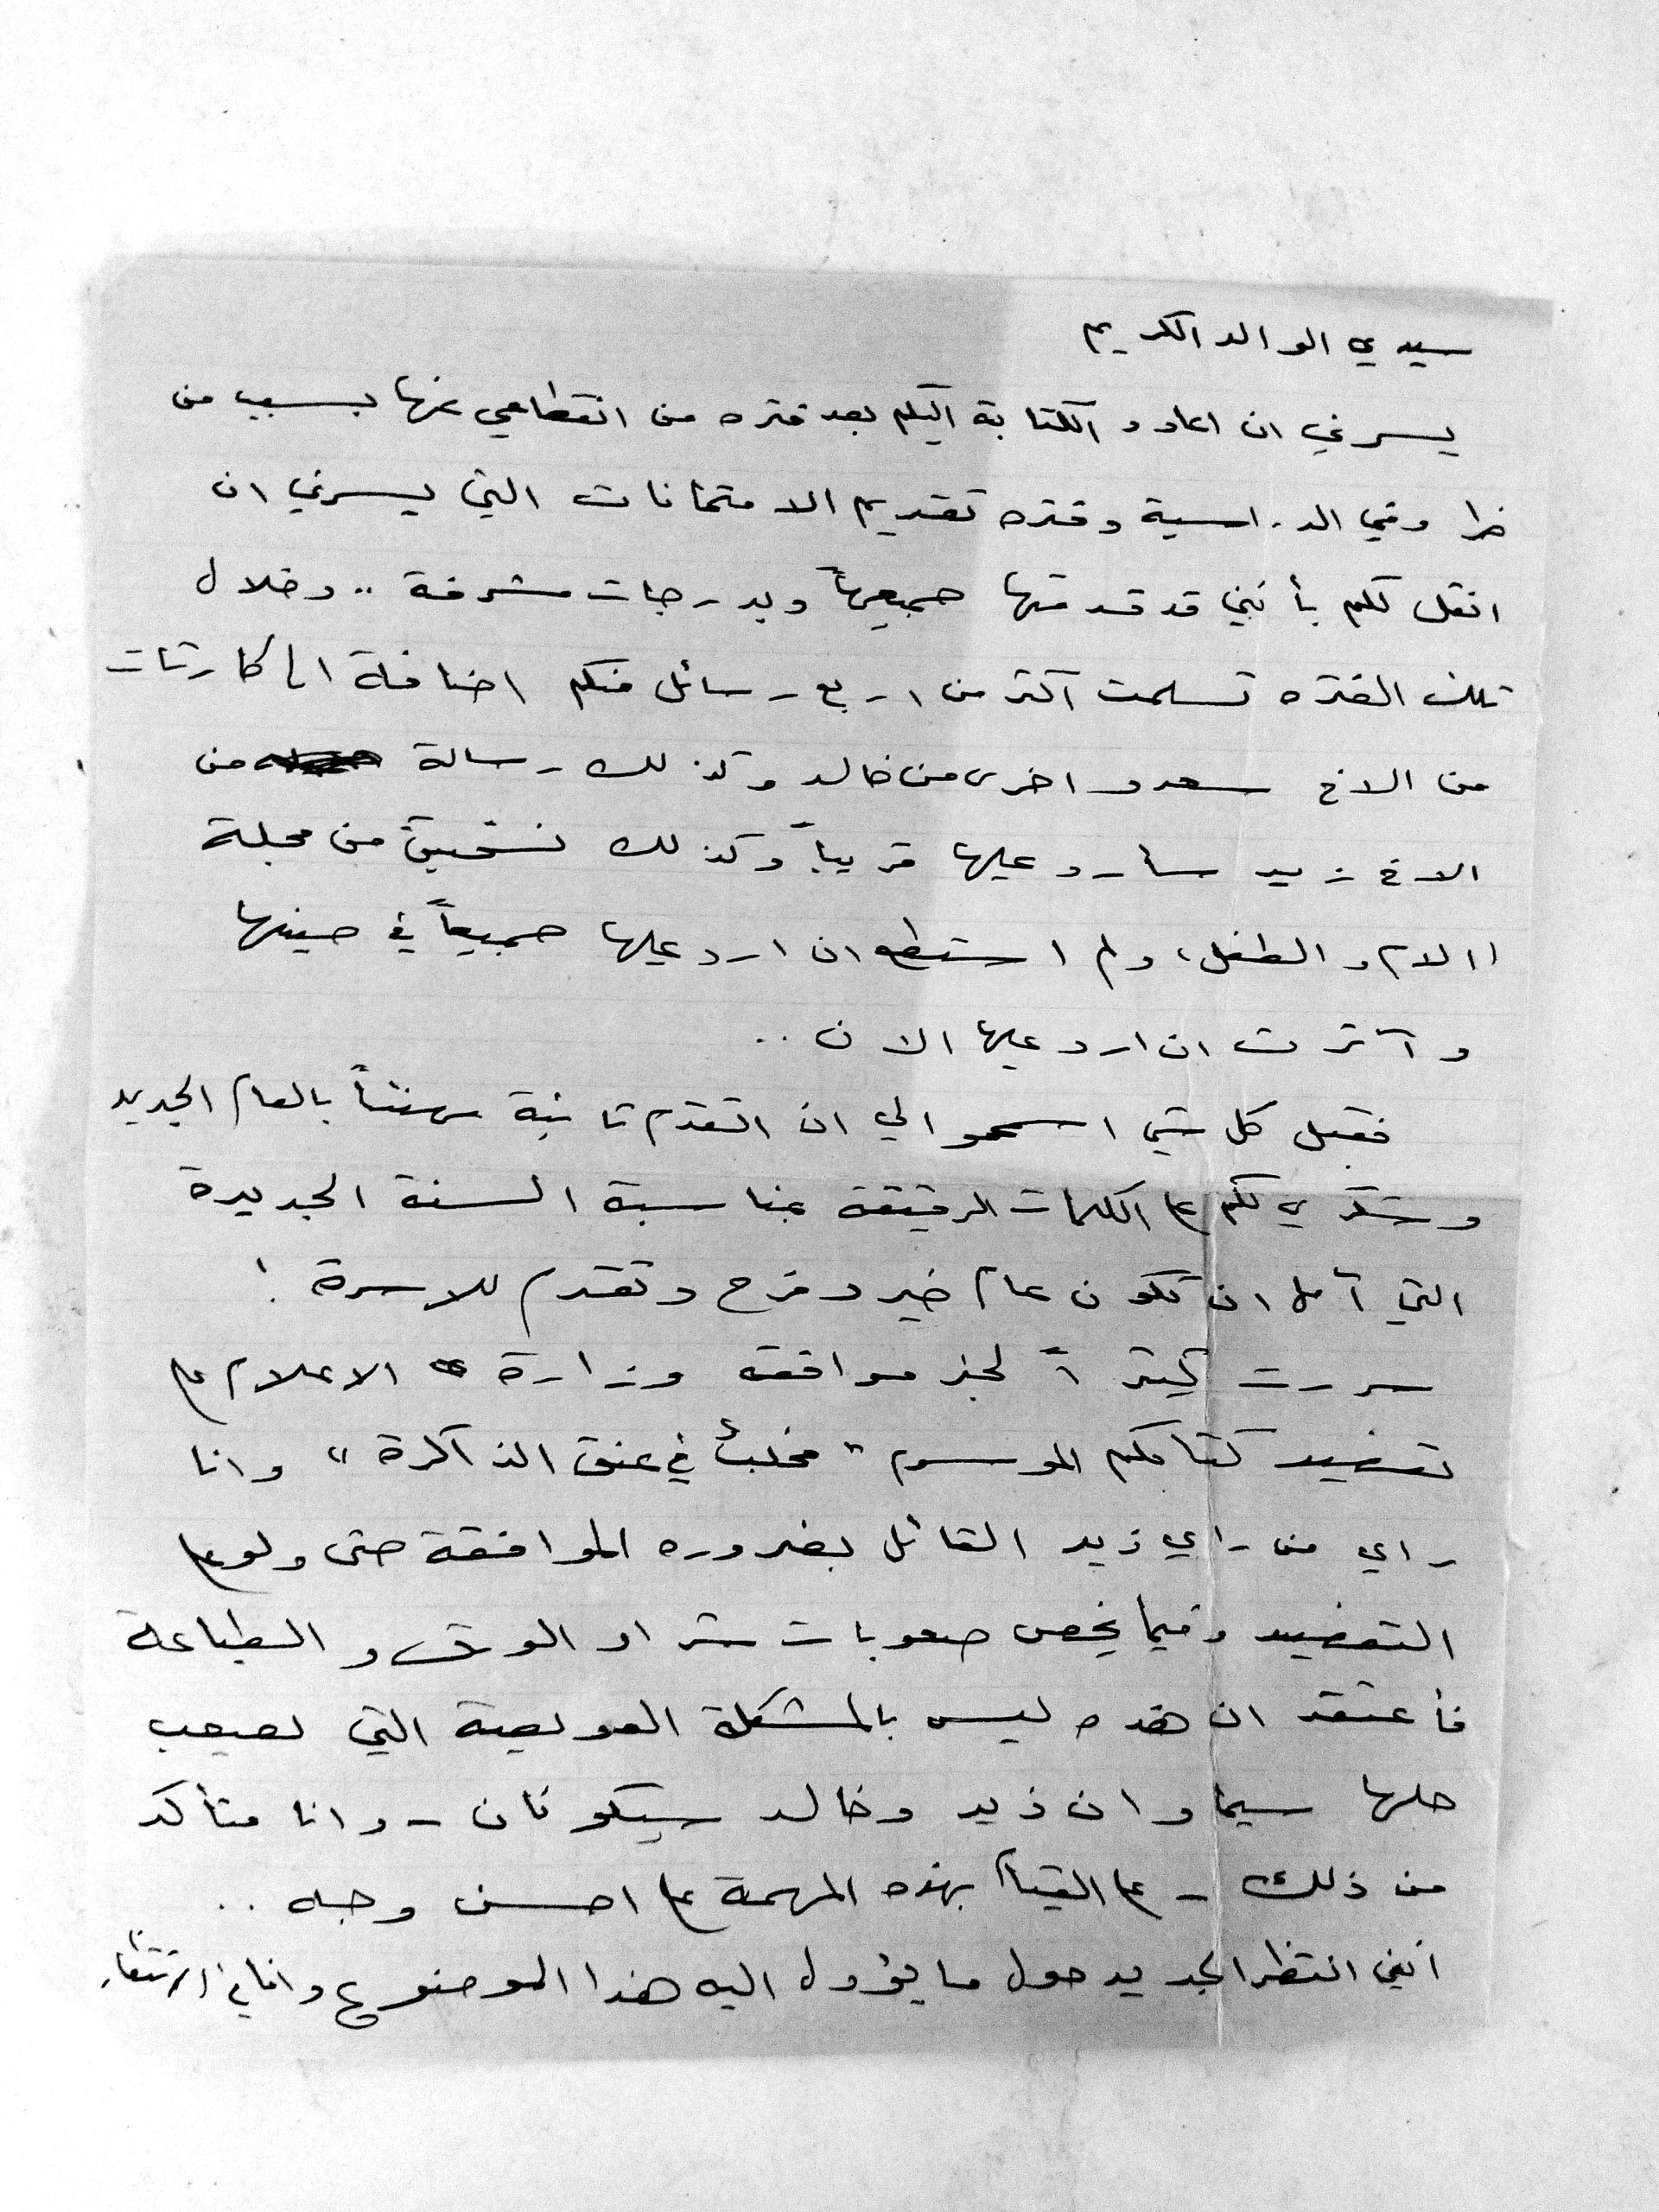 سيدي الوالد الكريم
يسرني ان اعاود الكتابة اليكم بعد فتره من انقطاعي عنها بسبب من
ظروفي الدراسية وفتره تقديم الامتحانات التي يسرني ان
انقل لكم بأنني قد قدمتها جميعهاً وبدرجات مشرفة .. وخلال
تلك الفتره تسلمت اكثر من اربع رسائل منكم اضافة الى كارتات
من الاخ سعد واخرى من خالد وكذلك رسالة من
الاخ زيد سأرد عليها قريباً وكذلك نسختين من مجلة
(الام والطفل) ولم استطع ان ارد عليها جميعاً في حينها
وآثرت ان ارد عليها الان ..
فقبل كل شي اسمحوا لي ان اتقدم ثانية مهنئاً بالعام الجديد
وشكري لكم على الكلمات الرقيقة بمناسبة السنة الجديدة
التي آمل ان تكون عام خير وفرح وتقدم للاسرة !
سررت كثيراً لخبر موافقة وزارة الاعلام على
تعضيد كتابكم الموسوم " مخلبٌ في عنق الذاكرة " وانا
راي من راي زيد القائل بضروره الموافقة حتى ولو على
التعضيد وفيما يخص صعوبات شراء الورق والطباعة
فأعتقد ان هذه ليس بالمشكلة العويصة التي يصعب
حلها سيما وان زيد وخالد سيكونان - وانا متأكد
من ذلك - على القيام بهذه المهمة على احسن وجه ..
انني انتظر الجديد حول ما يؤول اليه هذا الموضوع وانا في الانتظار